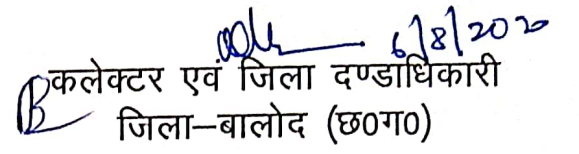 6/8/2020
कलेक्टर एवं जिला दण्डाधिकारी
जिला–बालोद (छ0ग0)